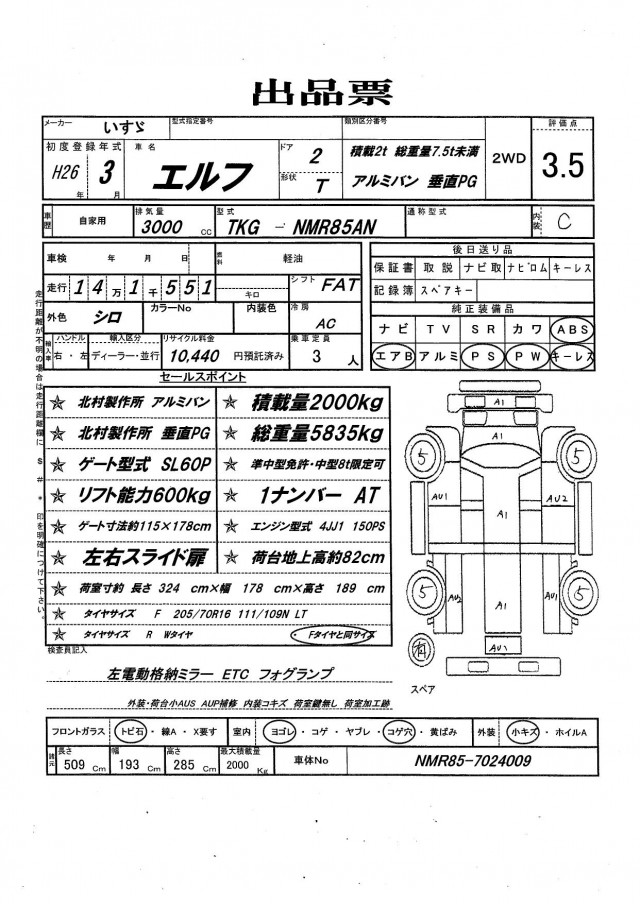 出品票
メーカー いすゞ 型式指定番号 類別区分番号 評価点
初度登録年式 H26 年 3 月 車名 エルフ ドア 2 形状 T 積載2t 総重量7.5t未満 アルミバン 垂直PG 2WD 3.5
車歴 自家用 排気量 3000 cc 型式 TKG - NMR85AN 通称型式 内装 C
車検 年 月 日 燃料 軽油
走行 14万1千551 キロ シフト FAT
外色 シロ カラーNo 内装色 冷房 AC
輸入車 ハンドル 右・左 輸入区分 ディーラー・並行 リサイクル料金 10,440 円預託済み 乗車定員 3 人
後日送り品
保証書 取説 ナビ取 ナビロム キーレス
記録簿 スペアキー
純正装備品
ナビ TV SR カワ ABS
エアB アルミ PS PW キーレス
走行距離が不明の場合は走行距離欄に $ # * 印を明確につけて下さい。
セールスポイント
☆ 北村製作所 アルミバン ☆ 積載量2000kg
☆ 北村製作所 垂直PG ☆ 総重量5835kg
☆ ゲート型式 SL60P ☆ 準中型免許・中型8t限定可
☆ リフト能力600kg ☆ 1ナンバー AT
☆ ゲート寸法約115×178cm ☆ エンジン型式 4JJ1 150PS
☆ 左右スライド扉 ☆ 荷台地上高約82cm
☆ 荷室寸約 長さ 324 cm×幅 178 cm×高さ 189 cm
☆ タイヤサイズ F 205/70R16 111/109N LT
☆ タイヤサイズ R Wタイヤ ・Fタイヤと同サイズ
A1
A1
5 5
AU1 A1 AU2
5 5
AU2 A1 AU1
AU1
有
スペア
検査員記入
左電動格納ミラー ETC フォグランプ
外装・荷台小AUS AUP補修 内装コキズ 荷室鍵無し 荷室加工跡
フロントガラス トビ石・線A・X要す 室内 ヨゴレ・コゲ・ヤブレ・コゲ穴・黄ばみ 外装 小キズ・ホイルA
諸元 長さ 509 Cm 幅 193 Cm 高さ 285 Cm 最大積載量 2000 Kg 車体No NMR85-7024009